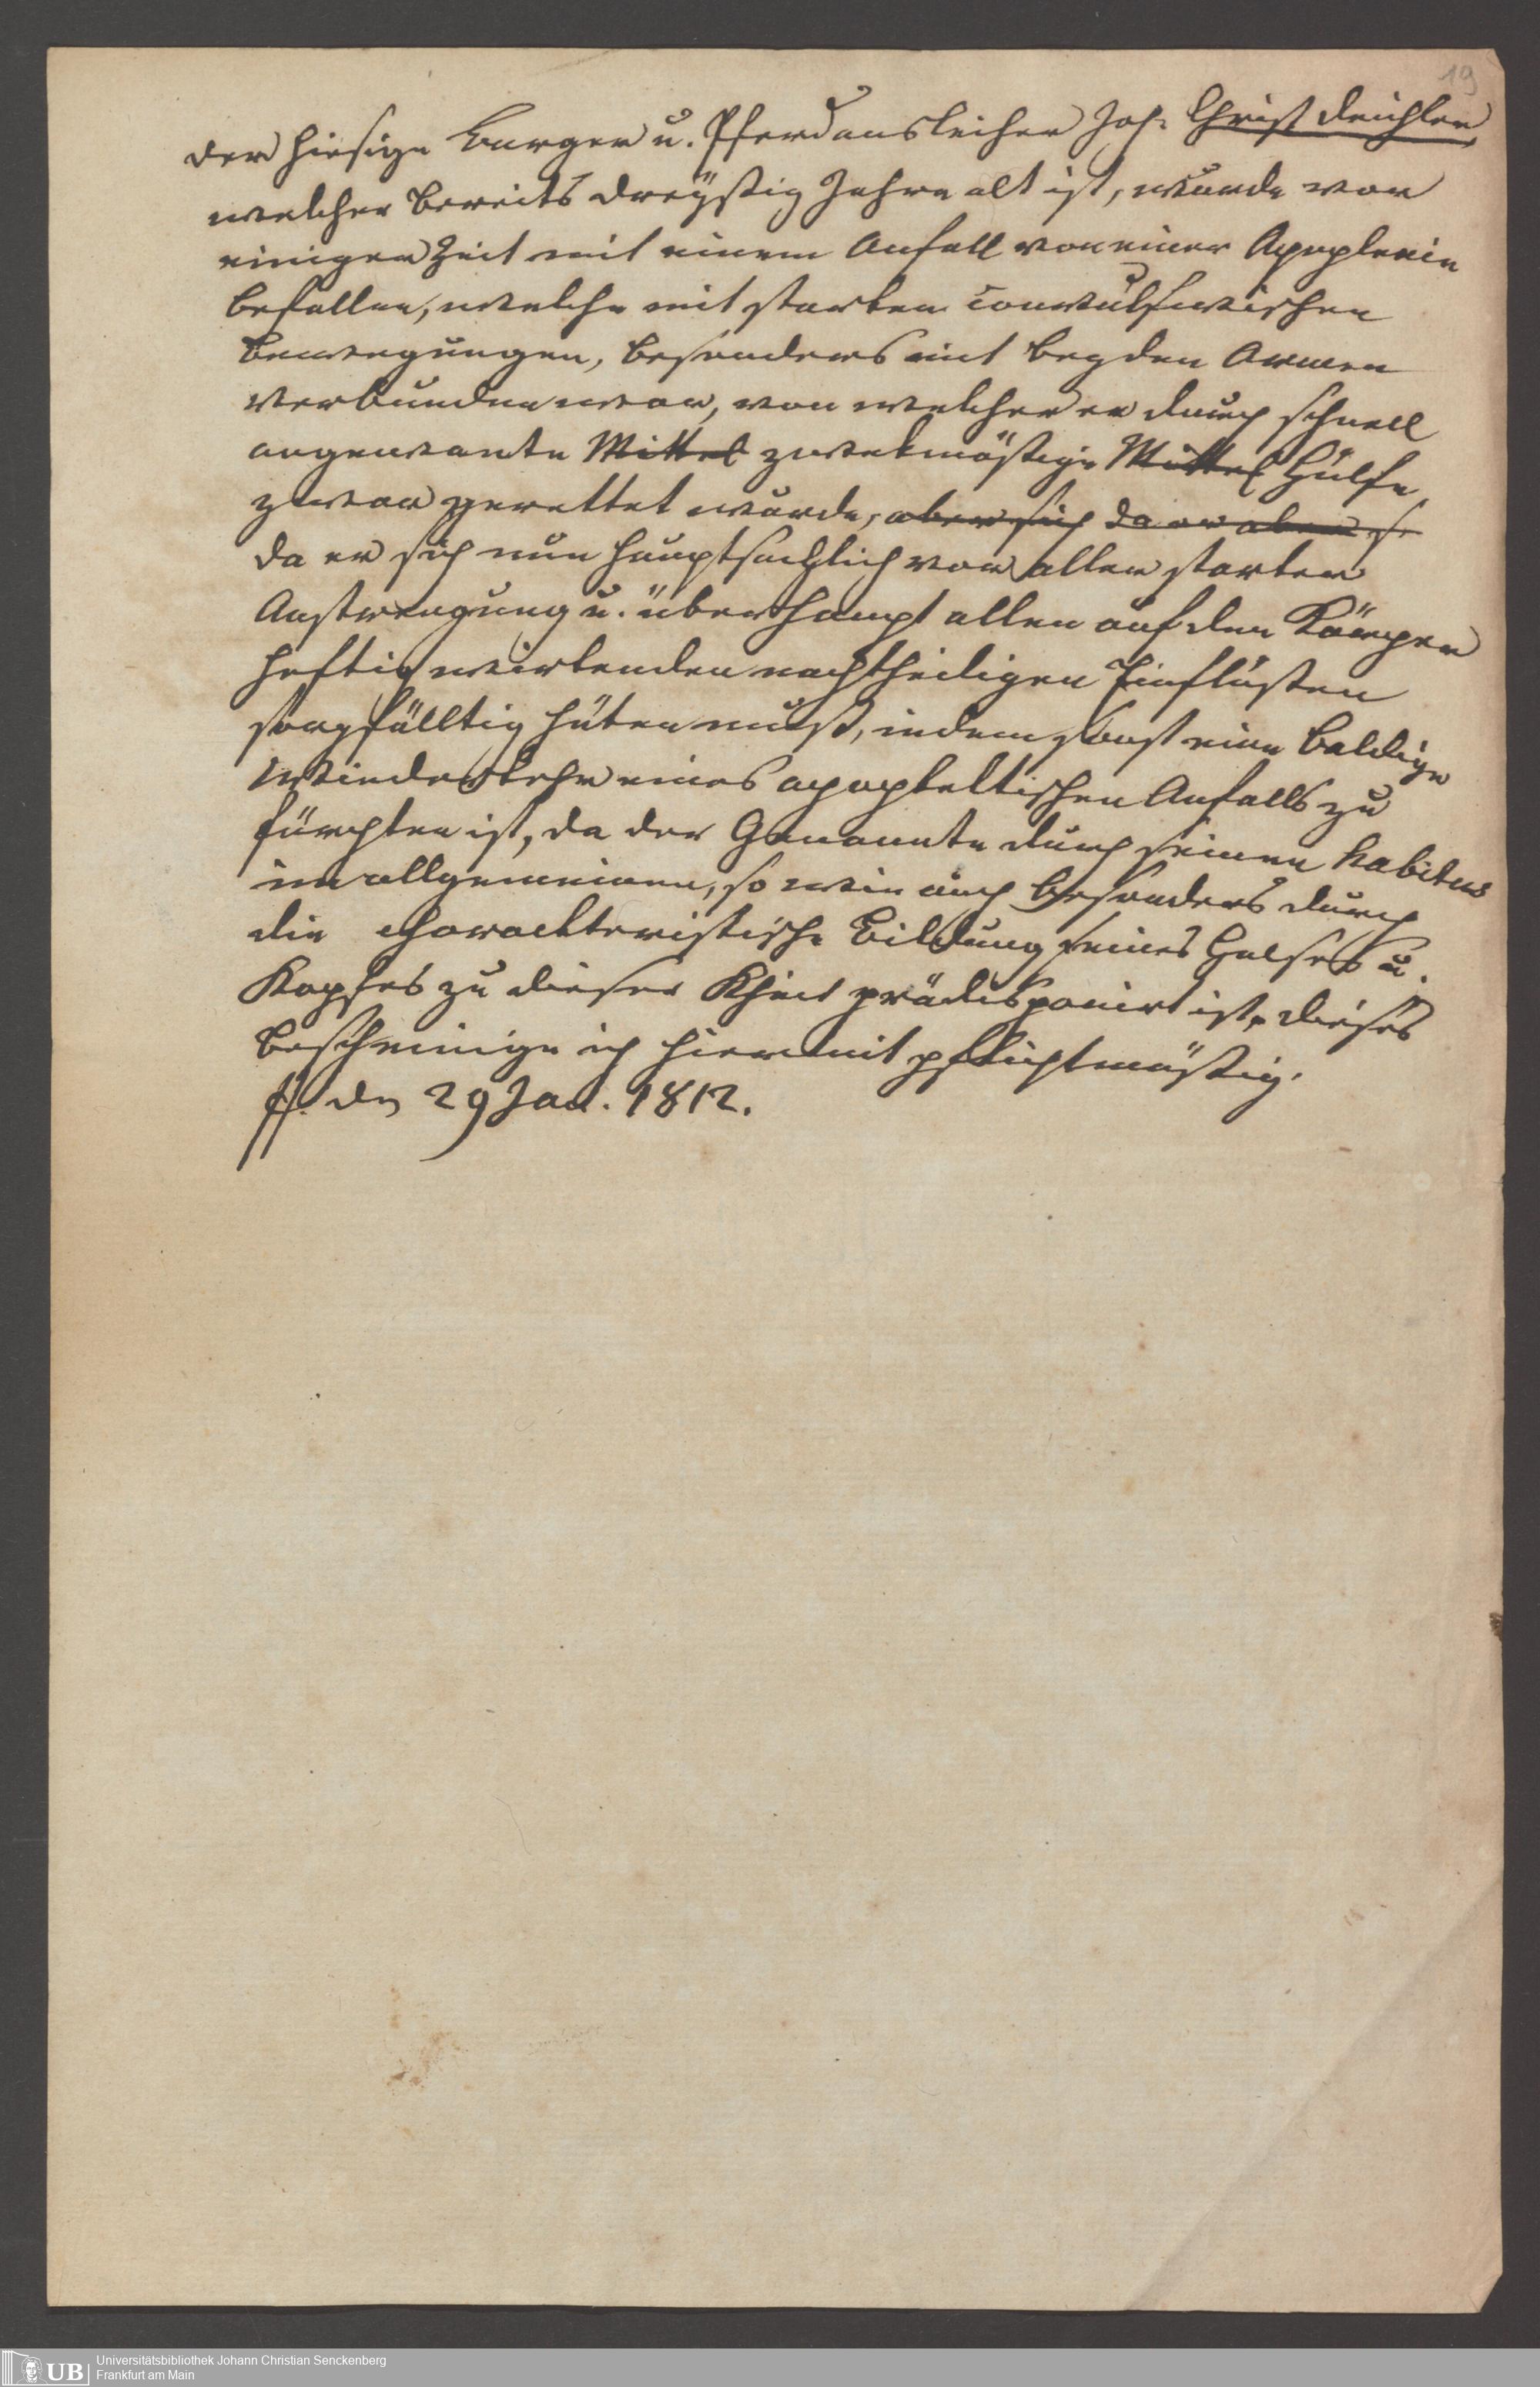 19
der hiesige Burger u. Pferdausleiher Joh. Christ Deichler
welcher bereits dreÿstig Jahre alt ist, wurde vor
einiger Zeit mit einem Anfall von einer Apoplexie
befallen, welche mit starken convulsivischen
Bewegungen, besonders mit beyden Armen
verbunden war, von welcher er durch schnell
angewante Mittel zwekmäsige Mittel Hülfe
zwar gerettet wurde, aber sich da er aber s
da er sich nun hauptsachlich vor aller starken
Anstrengung u. überhaupt allen auf den Körper
heftig wirkenden nachtheiligen Einflüsten
sorgfälltig hüten muß, indem sonst eine baldige
Wiederkehr eines apoplektischen Anfalls zu
fürchten ist, da der Genannte durch seinen habitus
im allgemeinen, so wie auch besonders durch
die charackteristische Bildung seines Halses u.
Kopfes zu dieser Kheit prädisponirt ist, dieses
bescheinige ich hiermit pflichtmäsig.
ff. den 29 Jan. 1812.
UB
Universitätsbibliothek Johann Christian Senckenberg
Frankfurt am Main